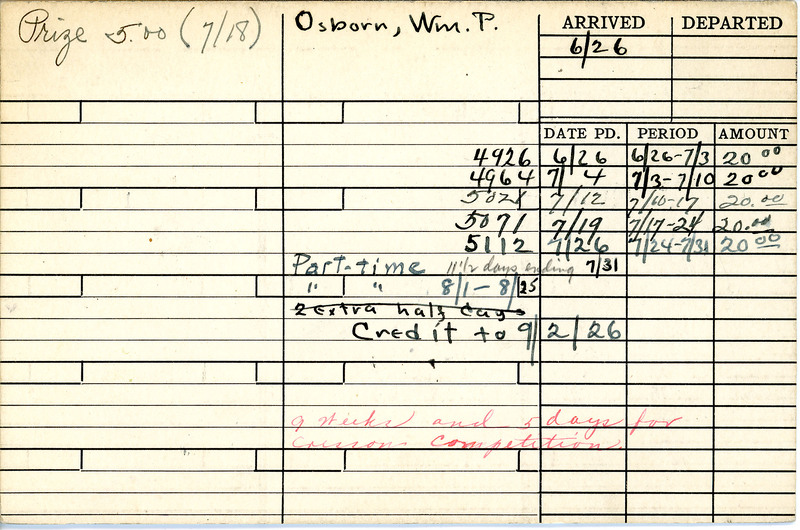 Prize 5.00 (7/18)
Osborn, Wm. P.
ARRIVED DEPARTED
6/26
DATE PD. PERIOD AMOUNT
4926 6/26 6/26-7/3 20 00
4964 7/4 7/3-7/10 20 00
5021 7/12 7/10-17 20.00
5071 7/19 7/17-24 20.00
5112 7/26 7/24-7/31 20 00
Part-time 11 1/2 days ending 7/31
" " 8/1-8/25
2 extra half days
Credit to 9/2/26
9 weeks and 5 days for
Cresson Competition